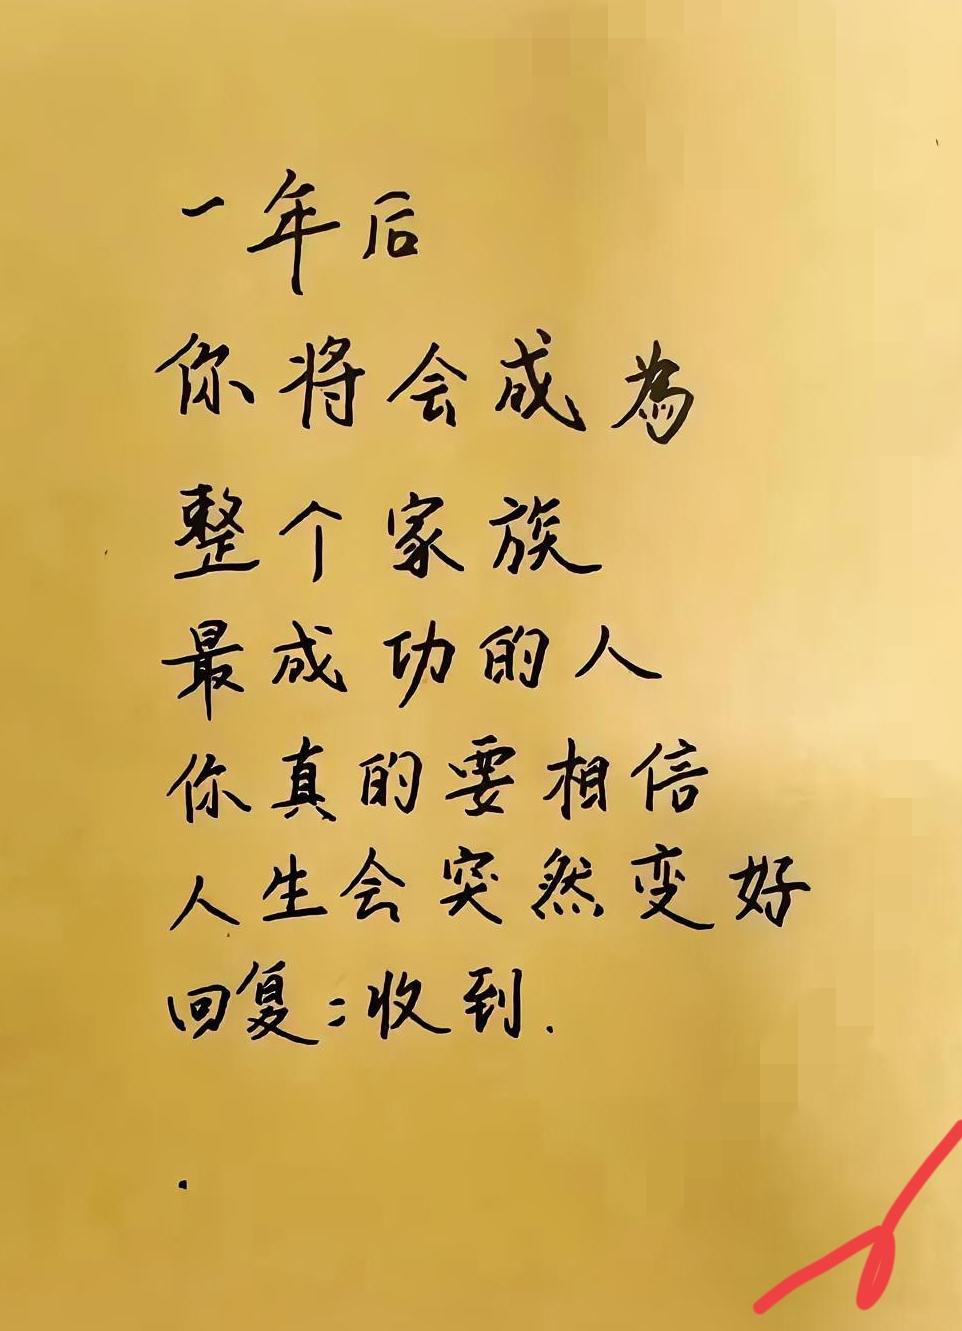 一年后
你将会成為
整个家族
最成功的人
你真的要相信
人生会突然变好
回复:收到.